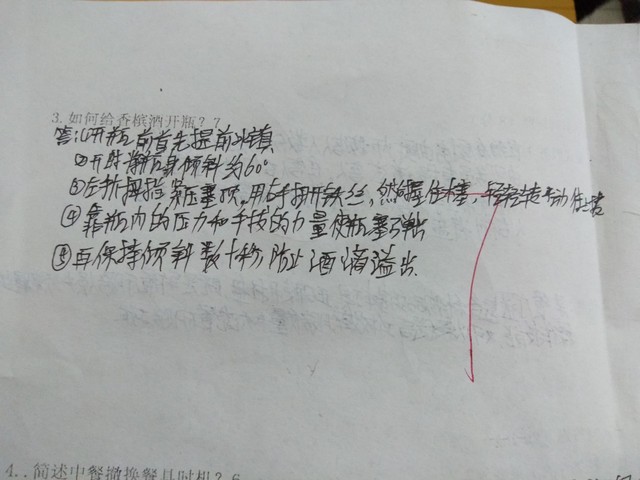 3. 如何给香槟酒开瓶？7
答:①开瓶前首先提前冰镇
②开时将瓶身倾斜约60°
③左拆拇指紧压塞顶,用右手扭开铁丝,然后握住木塞,轻轻转动住上拔
④靠瓶内的压力和手拔的力量使瓶塞弹出
⑤再保持倾斜数十秒,防止酒液溢出.
4..简述中餐撤换餐具时机？6